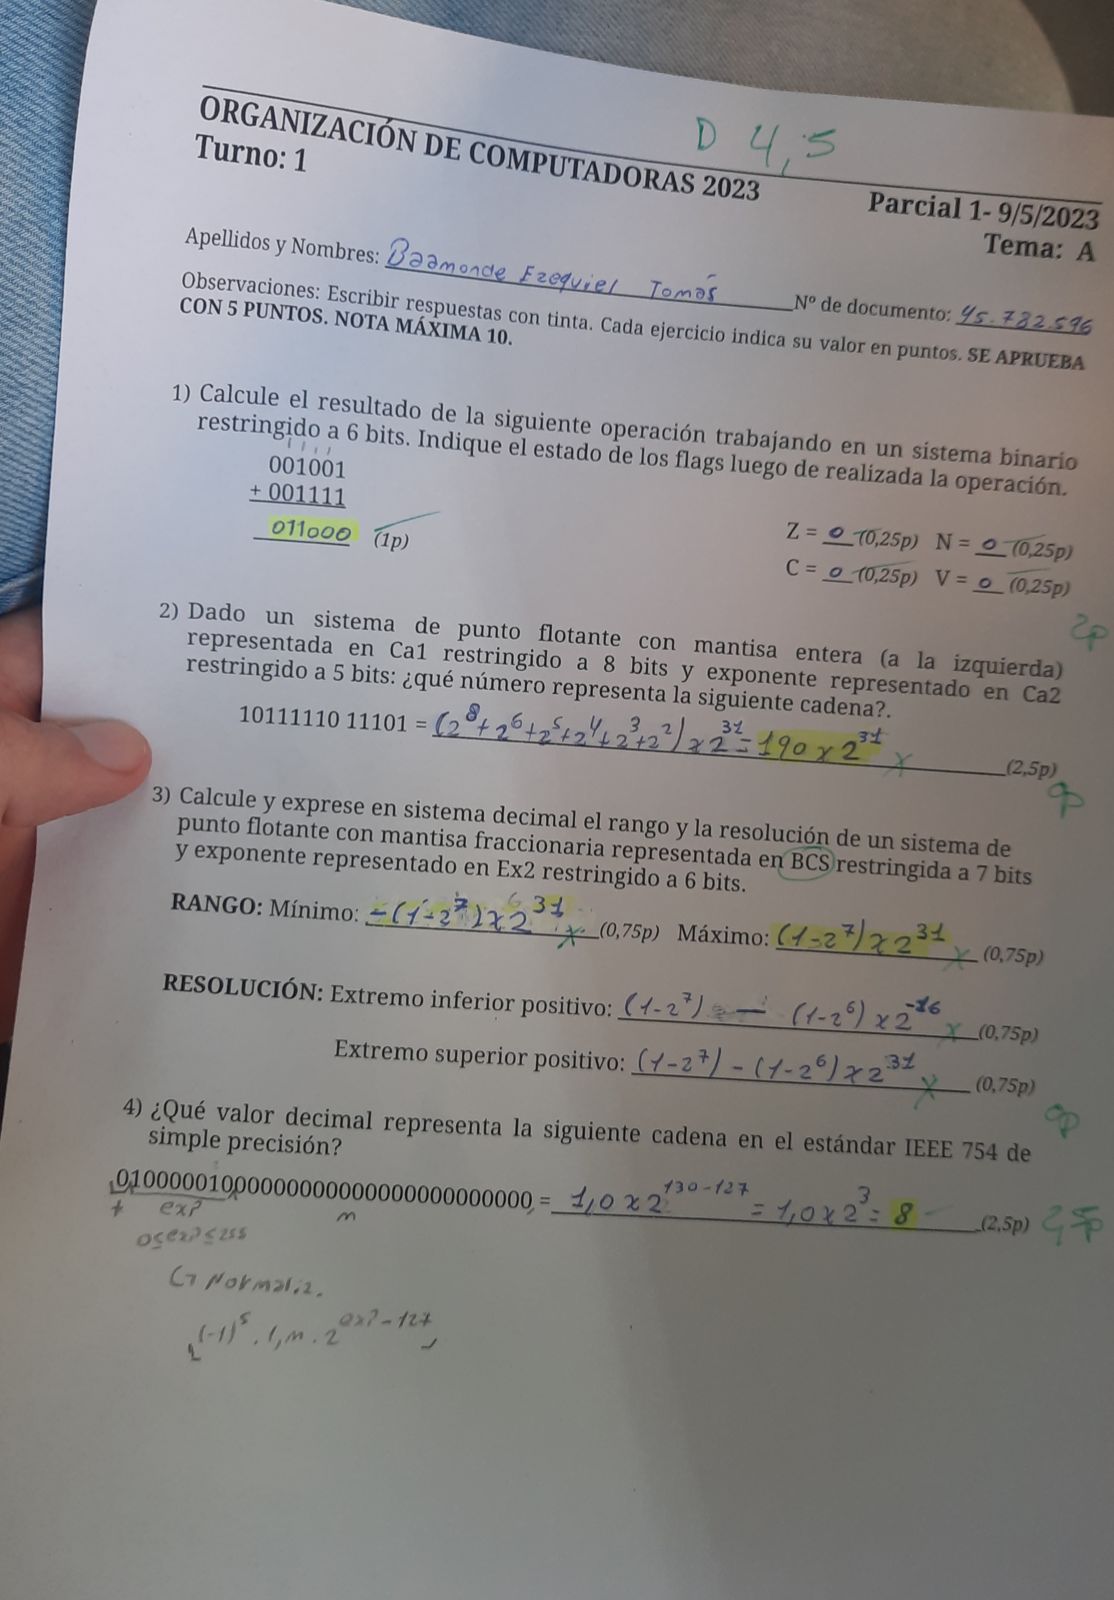 D 4,5
ORGANIZACIÓN DE COMPUTADORAS 2023
Turno: 1
Parcial 1- 9/5/2023
Tema: A
Apellidos y Nombres: Baamonde Ezequiel Tomás
Nº de documento: 45.782.596
Observaciones: Escribir respuestas con tinta. Cada ejercicio indica su valor en puntos. SE APRUEBA
CON 5 PUNTOS. NOTA MÁXIMA 10.
1) Calcule el resultado de la siguiente operación trabajando en un sistema binario
restringido a 6 bits. Indique el estado de los flags luego de realizada la operación.
1 1 1 1
001001
+ 001111
011000 (1p)
Z = 0 (0,25p) N = 0 (0,25p)
C = 0 (0,25p) V = 0 (0,25p)
2p
2) Dado un sistema de punto flotante con mantisa entera (a la izquierda)
representada en Ca1 restringido a 8 bits y exponente representado en Ca2
restringido a 5 bits: ¿qué número representa la siguiente cadena?.
10111110 11101 = (2^8+2^6+2^5+2^4+2^3+2^2) x 2^31 = 190 x 2^31 x (2,5p)
0p
3) Calcule y exprese en sistema decimal el rango y la resolución de un sistema de
punto flotante con mantisa fraccionaria representada en BCS restringida a 7 bits
y exponente representado en Ex2 restringido a 6 bits.
RANGO: Mínimo: -(1-2^7) x 2^31 x (0,75p) Máximo: (1-2^7) x 2^31 x (0,75p)
RESOLUCIÓN: Extremo inferior positivo: (1-2^7) - (1-2^6) x 2^-16 x (0,75p)
Extremo superior positivo: (1-2^7) - (1-2^6) x 2^31 x (0,75p)
0p
4) ¿Qué valor decimal representa la siguiente cadena en el estándar IEEE 754 de
simple precisión?
01000001000000000000000000000000 = 1,0 x 2^130-127 = 1,0 x 2^3 = 8 (2,5p)
2,5p
+ exp m
0≤exp≤255
Normaliz.
(-1)^s . 1,m . 2^exp-127